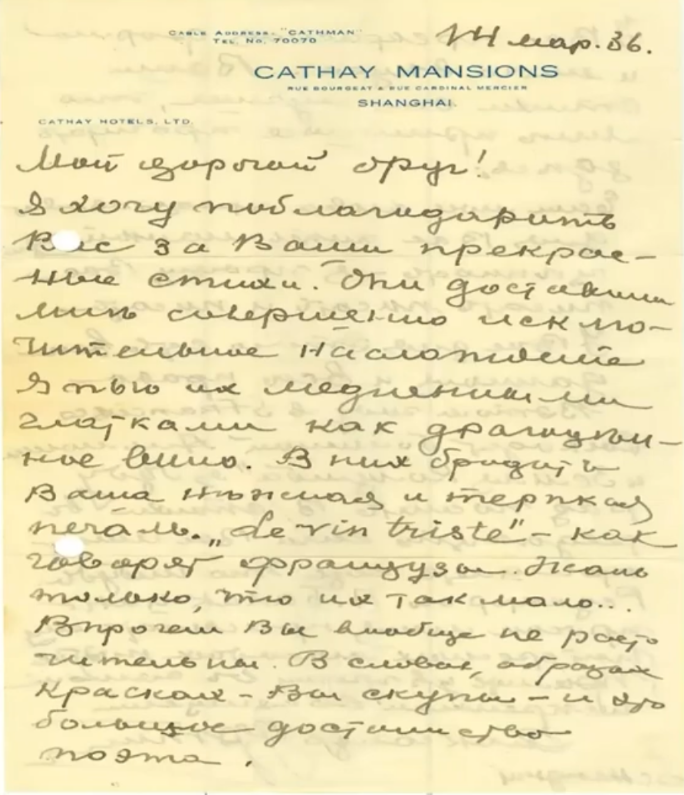 CABLE ADDRESS: "CATHMAN"
TEL. NO. 70070
14 мар. 36.
CATHAY MANSIONS
RUE BOURGEAT & RUE CARDINAL MERCIER
SHANGHAI.
CATHAY HOTELS, LTD.
Мой дорогой друг!
Я хочу поблагодарить
Вас за Ваши прекрас-
ные стихи. Они доставили
мнѣ совершенно исклю-
чительное наслаждение
Я пью их медленными
глотками как драгоцѣн-
ное вино. В них бродит
Ваша нѣжная и терпкая
печаль. „Le vin triste" – как
говорят французы. Жаль
только, что их так мало...
Впрочем Вы вообще не расто
чительны. В словах, образах
красках – Вы скупы – и это
большое достоинство
поэта.